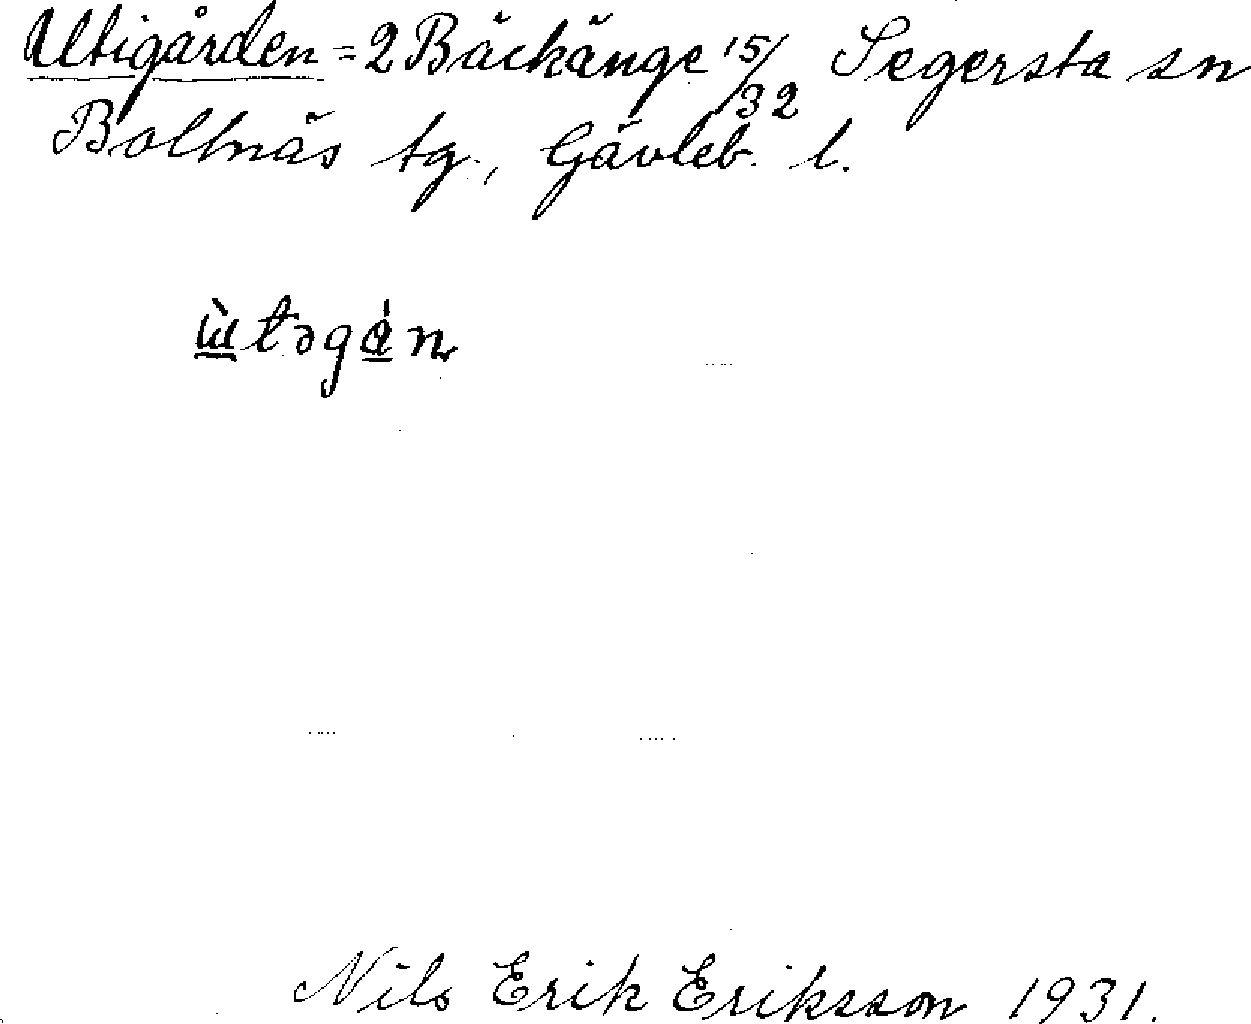 Utigården = 2 Bäckänge 15/32 Segersta sn
Bollnäs tg., Gävleb. l.
ɯ̀təgɑ́n
Nils Erik Eriksson 1931.